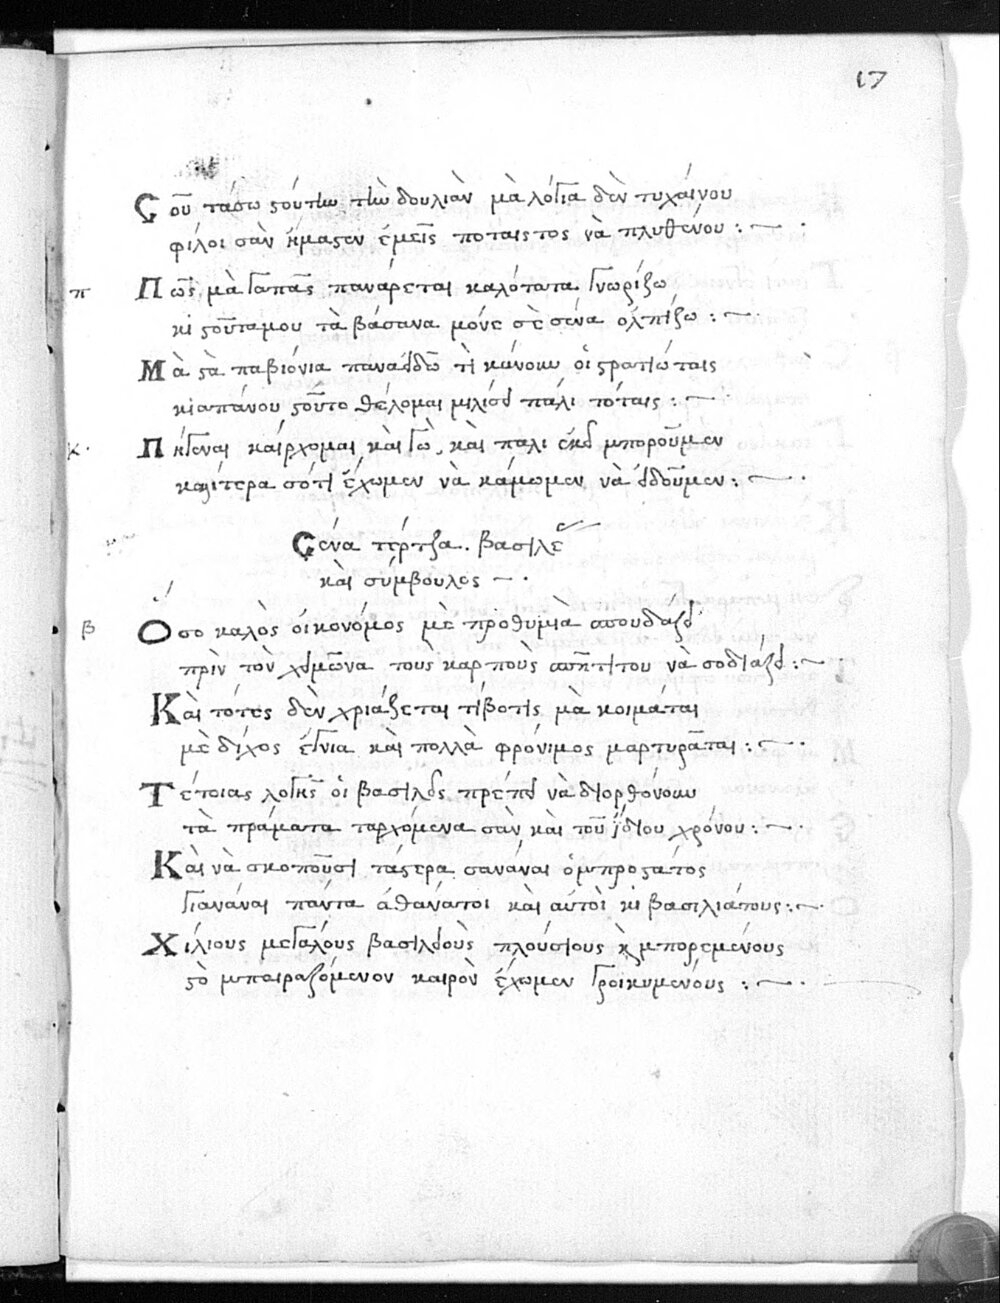 17
Σοῦ τάσω ςούτην τὴν δουλιὰν μὰ λόγια δὲν τυχαίνου
φίλοι σὰν ἤμαςεν ἐμεῖς ποταιςτος νὰ πλυθένου :~ .
π Πῶς μὰ γαπᾶς πανάρεται καλότατα γνωρίζω
κι ςοῦταμου τὰ βάσανα μόνε σὲ σένα ὀλπίζω :~
Μὰ ςὰ παβιόνια παναϊδῶ τὶ κάνουν οἱ ςρατιώταις
κιαπάνου ςοῦτο θέλομαι μιλίσει πάλι τόταις :~
κ. Πήγεναι καίρχομαι καὶ γὼ, καὶ πάλι ἐκεῖ μποροῦμεν
καλίτερα σότι ἔχωμεν νὰ κάμωμεν νὰ ἰδοῦμεν :~ .
Σενα τέρτζα. βασιλε
καὶ σύμβουλος ~ .
β Ὅσο καλὸς οἰκονόμος μὲ προθυμία σπουδάζει
πρὶν τὸν χειμῶνα τοὺς καρποὺς σπήτιτου νὰ σοδιάζει :~ .
Καὶ τότες δὲν χριάζεται τίβοτις μὰ κοιμάται
μὲ δίχος ἔγνια καὶ πολλὰ φρόνιμος μαρτυρᾶται :~ .
Τέτοιας λογῆς οἱ βασιλεῖς πρέπει νὰ διορθόνουν
τὰ πράματα ταρχόμενα σὰν καὶ τοῦ ἴδιου χρόνου :~ .
Καὶ νὰ σκοποῦσι τάςερα σανάναι ὀμπροςάτος
γιανάναι πάντα ἀθάνατοι καὶ αὐτοὶ κι βασιλιάτους :~ .
Χιλίους μεγαλους βασιλειοὺς πλούσιους κ μπορεμένους
ςὸ μπαιραζόμενον καιρὸν ἔχωμεν γροικυμένους :~ .